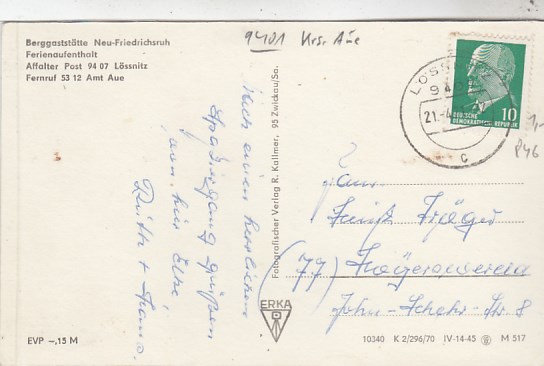 Berggaststätte Neu-Friedrichsruh
Ferienaufenthalt
Affalter Post 94 07 Lössnitz
Fernruf 53 12 Amt Aue
9401 Krs. Aue
Nach einem herrlichen
Spaziergang grüßen
Ruth + Hans.
Fotografischer Verlag R. Kallmer, 95 Zwickau/Sa.
ERKA
LÖSS
94
21.-4
c
10
DEUTSCHE
DEMOKRATISCHE REPUBLIK
1,-
P46
Fam.
Jäger
(77) Hoyerswerda
John-Schehr-Str. 8
EVP -,15 M
10340 K 2/296/70 IV-14-45 M 517